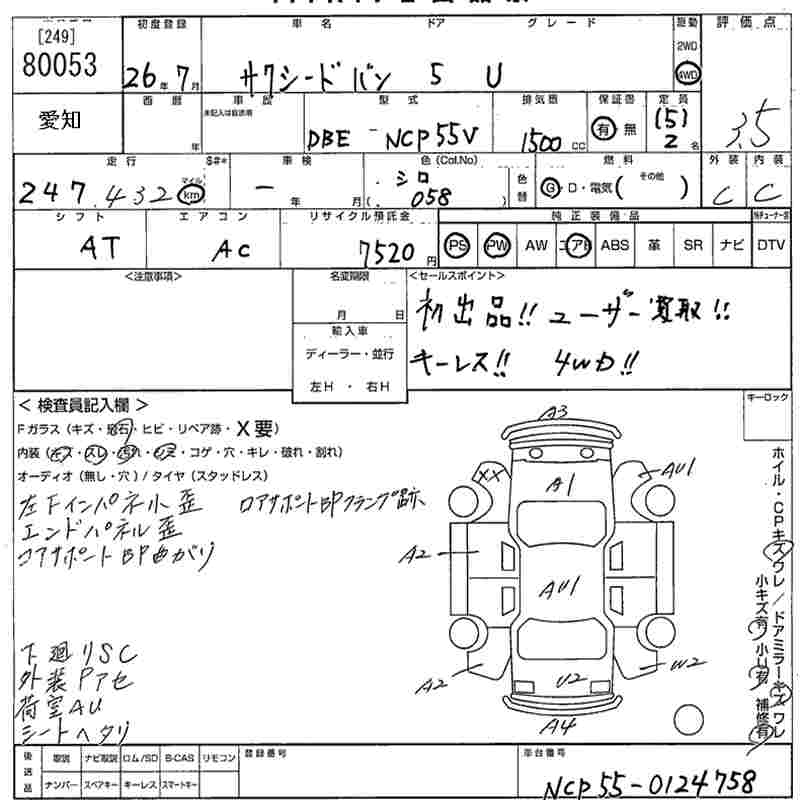 [249]
80053
初度登録 車名 ドア グレード 駆動 評価点
26年 7月 サクシードバン 5 U 2WD 4WD 3.5
愛知
西暦 車歴 型式 排気量 保証書 定員
未記入は自家用
年 DBE - NCP55V 1500cc 有 無 (5) 2名
走行 車検 色(Col.No) 燃料 外装 内装
247,432 マイル km - 年 月 シロ (058) 色替 G・D・電気( その他 ) C C
シフト エアコン リサイクル預託金 純正装備品
AT AC 7520円 PS PW AW エアB ABS 革 SR ナビ DTV
<注意事項> 名変期限 <セールスポイント>
月 日
初出品!! ユーザー買取!!
輸入車
ディーラー・並行
キーレス!! 4WD!!
左H・右H
キーロック
<検査員記入欄>
Fガラス(キズ・飛石・ヒビ・リペア跡・X要)
内装(キズ・スレ・汚れ・シミ・コゲ・穴・キレ・破れ・割れ)
オーディオ(無し・穴)/タイヤ(スタッドレス)
左Fインパネル小歪 コアサポートBPクランプ跡
エンドパネル歪
コアサポートBP曲がり
A3
XX
A1
AU1
A2
AU1
A2
U2
W2
A4
ホイル・CPキズワレ/ドアミラーキズワレ
小キズ有 小U有 補修有
下廻りSC
外装Pアセ
荷室AU
シートヘタリ
後送品 取説 ナビ取説 ロム/SD B-CAS リモコン 登録番号 車台番号
ナンバー スペアキー キーレス スマートキー
NCP55-0124758